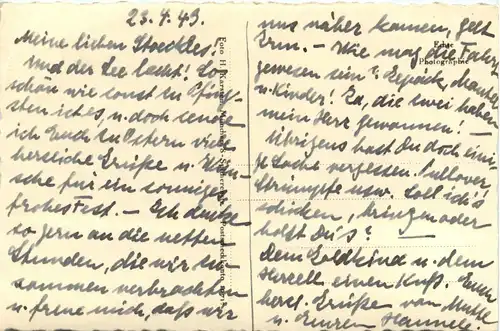 23.4.43.
Meine lieben Stoeckles!
Und der See lacht! So
schön wie sonst zu Pfing-
sten ist es, u. doch sende
ich Euch zu Ostern viel
herzliche Grüße u. Wün-
sche für ein sonniges
frohes Fest. – Ich denke
so gern an die netten
Stunden, die wir zu-
sammen verbrachten
u. freue mich, daß wir
uns näher kamen, gelt
Erm. – Wie mag die Fahrt
gewesen sein? Gepäck,
u. Kinder! Ja, die zwei haben
mein Herz gewonnen! –
Übrigens hast Du doch eini-
ge Sache vergessen. Pullover,
Strümpfe usw. Soll ich's
schicken, bringen oder
holst Du's?
Dem Goldkind u. dem
einen Kuß. Euch
herzl. Grüße von
u. Euren Hannele
Echte
Photographie
Foto H.